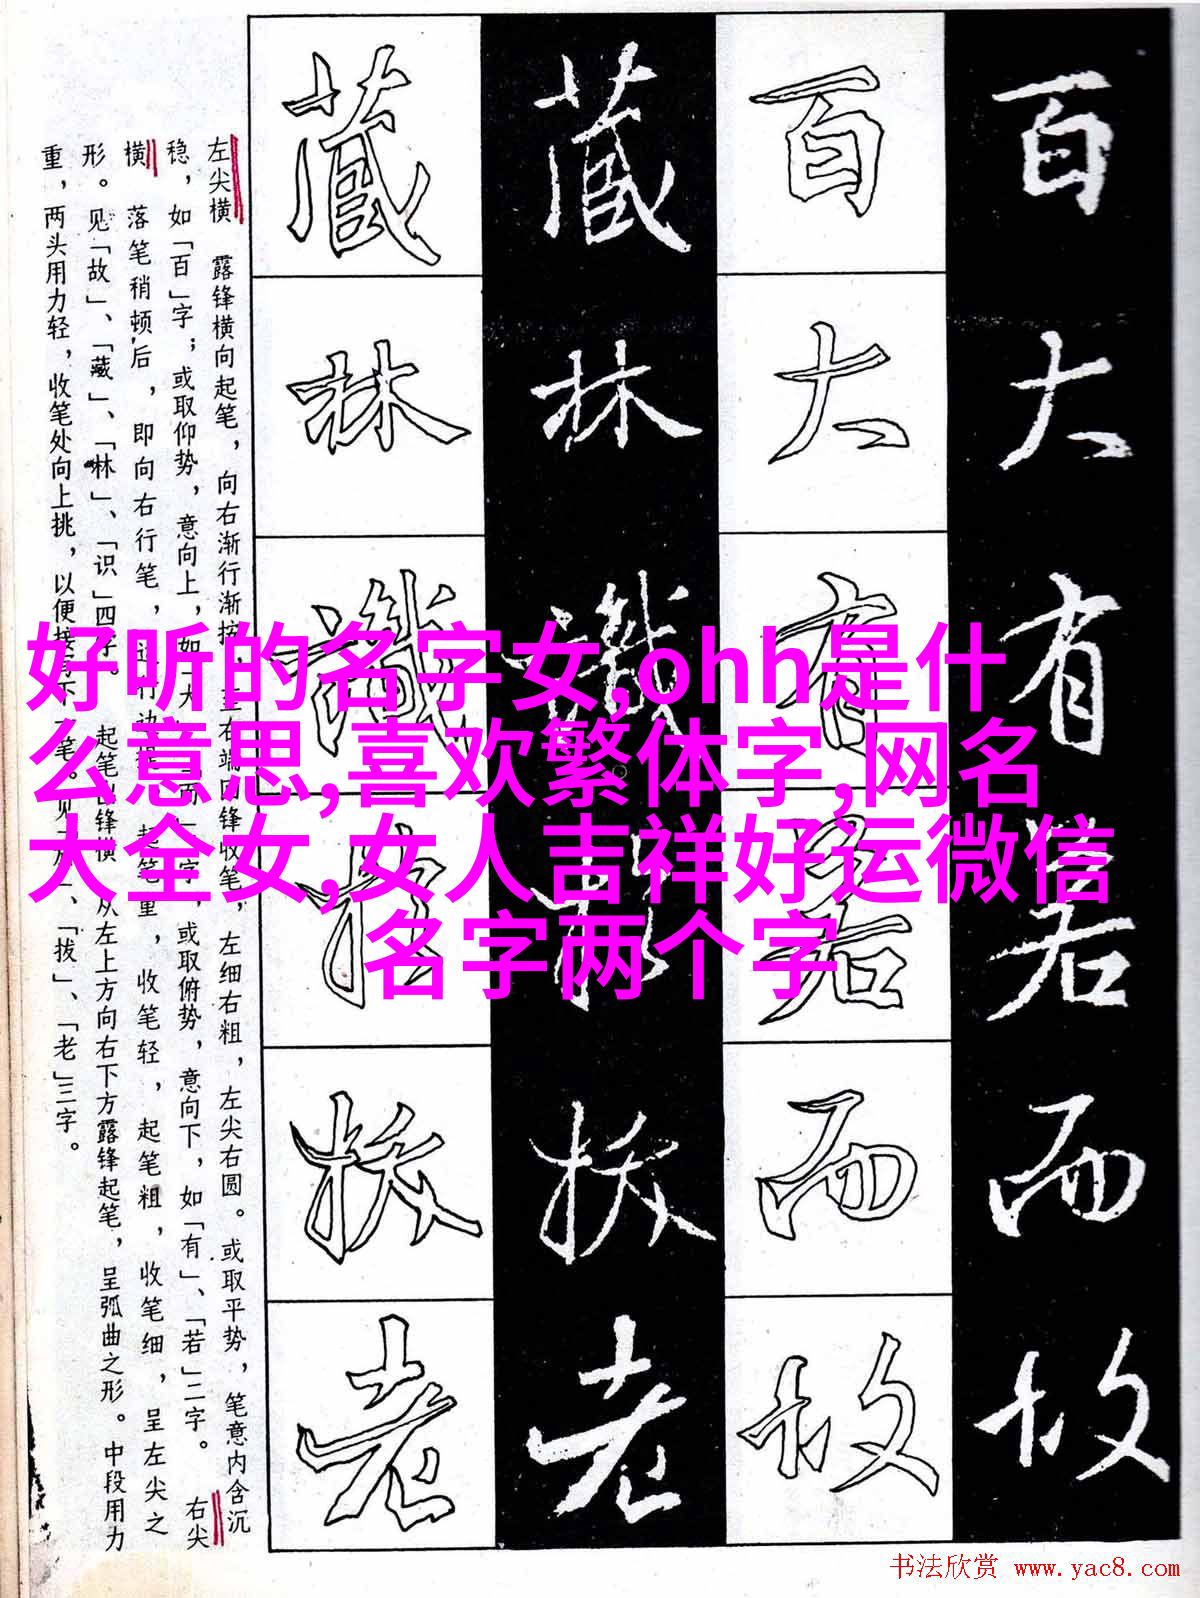 好听的名字女,ohh是什
么意思,喜欢繁体字,网名
大全女,女人吉祥好运微信
名字两个字
百大有若而故
百大有若而故
藏林識 老
藏林識 老
左尖横 露锋横向起笔，向右渐行渐按，至右端回锋收笔，左细右粗，左尖右圆。或取平势，笔意内含沉
稳，如「百」字；或取仰势，意向上，如「大」、「而」字，或取俯势，意向下，如「有」、「若」二字。 右尖
横 落笔稍顿后，即向右行笔，边行边提，起笔重，收笔轻，起笔粗，收笔细，呈左尖之
形。见「故」、「藏」、「林」、「识」四字。 起笔 锋横 从左上方向右下方露锋起笔，呈弧曲之形。中段用力
重，两头用力轻，收笔处向上挑，以便接写下笔。见 、「拔」、「老」三字。
书法欣赏 www.yac8.com